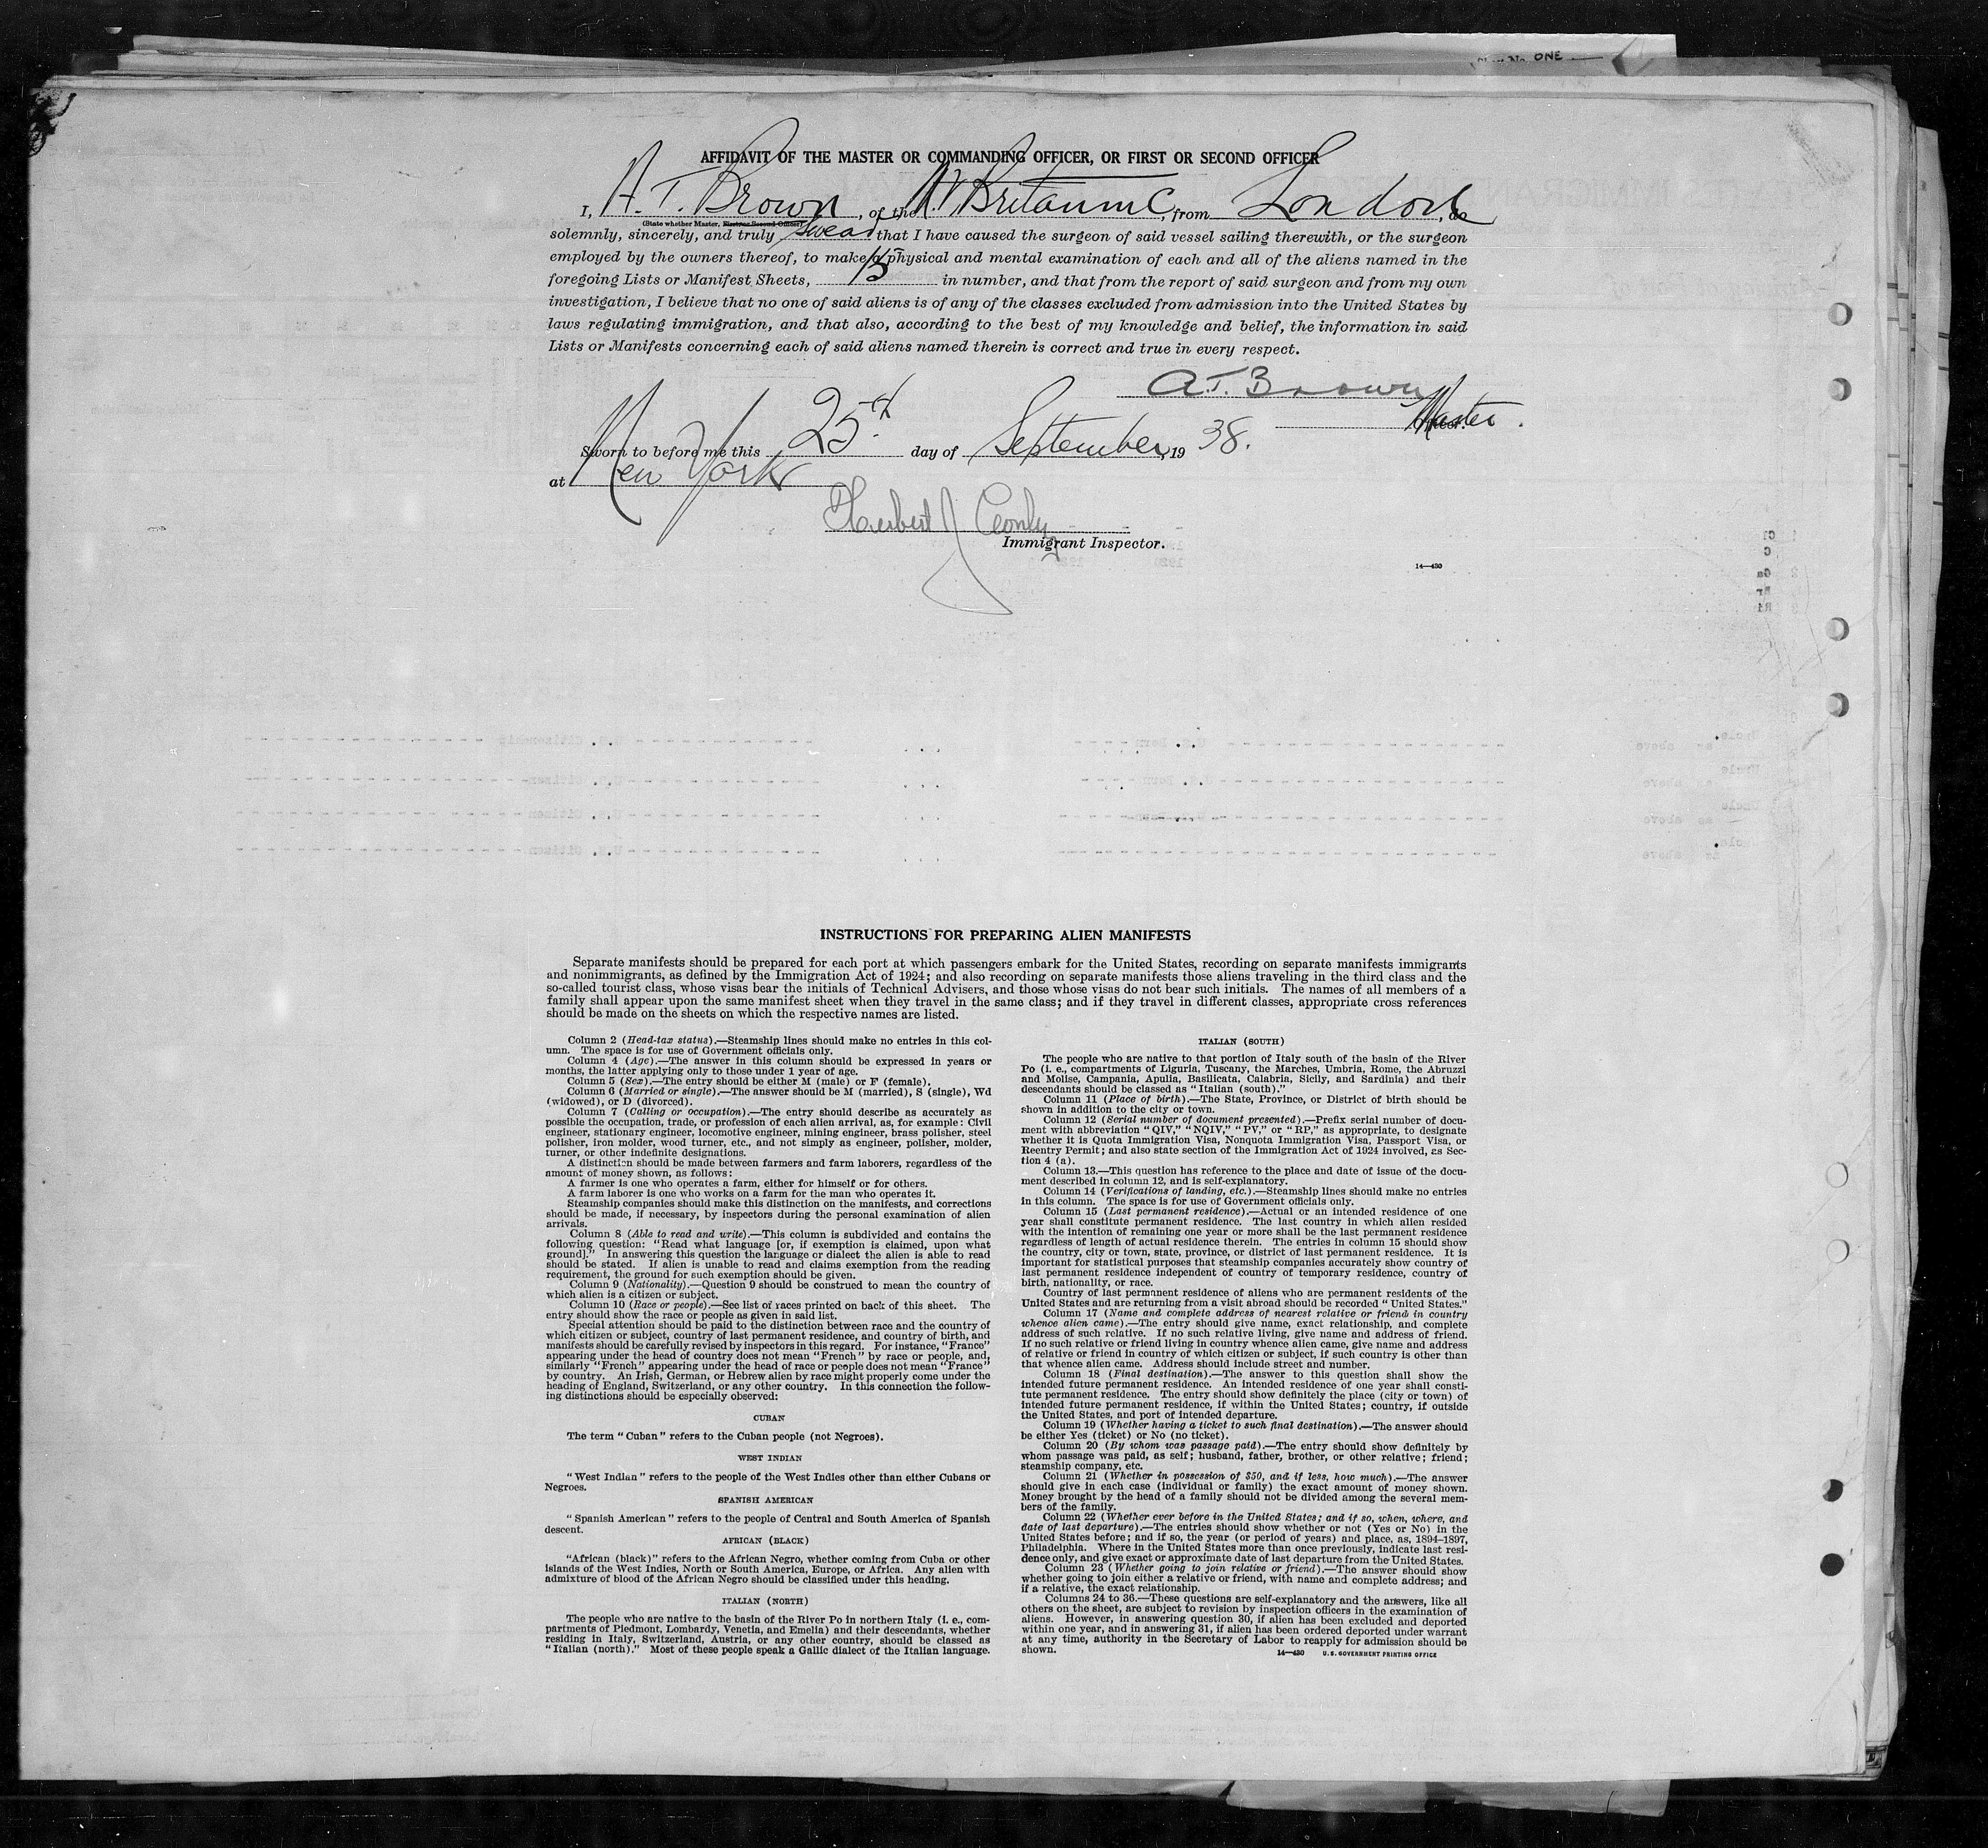 ONE
AFFIDAVIT OF THE MASTER OR COMMANDING OFFICER, OR FIRST OR SECOND OFFICER
I, A. T. Brown, of the M.V. Britannic, from London, do
(State whether Master, First or Second Officer)
solemnly, sincerely, and truly swear that I have caused the surgeon of said vessel sailing therewith, or the surgeon
employed by the owners thereof, to make a physical and mental examination of each and all of the aliens named in the
foregoing Lists or Manifest Sheets, 15 in number, and that from the report of said surgeon and from my own
investigation, I believe that no one of said aliens is of any of the classes excluded from admission into the United States by
laws regulating immigration, and that also, according to the best of my knowledge and belief, the information in said
Lists or Manifests concerning each of said aliens named therein is correct and true in every respect.
A.T. Brown
Master.
Sworn to before me this 25th day of September, 19 38.
at New York
Herbert J
Immigrant Inspector.
14—430
INSTRUCTIONS FOR PREPARING ALIEN MANIFESTS
Separate manifests should be prepared for each port at which passengers embark for the United States, recording on separate manifests immigrants
and nonimmigrants, as defined by the Immigration Act of 1924; and also recording on separate manifests those aliens traveling in the third class and the
so-called tourist class, whose visas bear the initials of Technical Advisers, and those whose visas do not bear such initials. The names of all members of a
family shall appear upon the same manifest sheet when they travel in the same class; and if they travel in different classes, appropriate cross references
should be made on the sheets on which the respective names are listed.
Column 2 (Head-tax status).—Steamship lines should make no entries in this col-
umn. The space is for use of Government officials only.
Column 4 (Age).—The answer in this column should be expressed in years or
months, the latter applying only to those under 1 year of age.
Column 5 (Sex).—The entry should be either M (male) or F (female).
Column 6 (Married or single).—The answer should be M (married), S (single), Wd
(widowed), or D (divorced).
Column 7 (Calling or occupation).—The entry should describe as accurately as
possible the occupation, trade, or profession of each alien arrival, as, for example: Civil
engineer, stationary engineer, locomotive engineer, mining engineer, brass polisher, steel
polisher, iron molder, wood turner, etc., and not simply as engineer, polisher, molder,
turner, or other indefinite designations.
A distinction should be made between farmers and farm laborers, regardless of the
amount of money shown, as follows:
A farmer is one who operates a farm, either for himself or for others.
A farm laborer is one who works on a farm for the man who operates it.
Steamship companies should make this distinction on the manifests, and corrections
should be made, if necessary, by inspectors during the personal examination of alien
arrivals.
Column 8 (Able to read and write).—This column is subdivided and contains the
following question: "Read what language [or, if exemption is claimed, upon what
ground]." In answering this question the language or dialect the alien is able to read
should be stated. If alien is unable to read and claims exemption from the reading
requirement, the ground for such exemption should be given.
Column 9 (Nationality).—Question 9 should be construed to mean the country of
which alien is a citizen or subject.
Column 10 (Race or people).—See list of races printed on back of this sheet. The
entry should show the race or people as given in said list.
Special attention should be paid to the distinction between race and the country of
which citizen or subject, country of last permanent residence, and country of birth, and
manifests should be carefully revised by inspectors in this regard. For instance, "France"
appearing under the head of country does not mean "French" by race or people, and,
similarly "French" appearing under the head of race or people does not mean "France"
by country. An Irish, German, or Hebrew alien by race might properly come under the
heading of England, Switzerland, or any other country. In this connection the follow-
ing distinctions should be especially observed:
CUBAN
The term "Cuban" refers to the Cuban people (not Negroes).
WEST INDIAN
"West Indian" refers to the people of the West Indies other than either Cubans or
Negroes.
SPANISH AMERICAN
"Spanish American" refers to the people of Central and South America of Spanish
descent.
AFRICAN (BLACK)
"African (black)" refers to the African Negro, whether coming from Cuba or other
islands of the West Indies, North or South America, Europe, or Africa. Any alien with
admixture of blood of the African Negro should be classified under this heading.
ITALIAN (NORTH)
The people who are native to the basin of the River Po in northern Italy (i. e., com-
partments of Piedmont, Lombardy, Venetia, and Emelia) and their descendants, whether
residing in Italy, Switzerland, Austria, or any other country, should be classed as
"Italian (north)." Most of these people speak a Gallic dialect of the Italian language.
ITALIAN (SOUTH)
The people who are native to that portion of Italy south of the basin of the River
Po (i. e., compartments of Liguria, Tuscany, the Marches, Umbria, Rome, the Abruzzi
and Molise, Campania, Apulia, Basilicata, Calabria, Sicily, and Sardinia) and their
descendants should be classed as "Italian (south)."
Column 11 (Place of birth).—The State, Province, or District of birth should be
shown in addition to the city or town.
Column 12 (Serial number of document presented).—Prefix serial number of docu-
ment with abbreviation "QIV," "NQIV," "PV," or "RP," as appropriate, to designate
whether it is Quota Immigration Visa, Nonquota Immigration Visa, Passport Visa, or
Reentry Permit; and also state section of the Immigration Act of 1924 involved, as Sec-
tion 4 (a).
Column 13.—This question has reference to the place and date of issue of the docu-
ment described in column 12, and is self-explanatory.
Column 14 (Verifications of landing, etc.).—Steamship lines should make no entries
in this column. The space is for use of Government officials only.
Column 15 (Last permanent residence).—Actual or an intended residence of one
year shall constitute permanent residence. The last country in which alien resided
with the intention of remaining one year or more shall be the last permanent residence
regardless of length of actual residence therein. The entries in column 15 should show
the country, city or town, state, province, or district of last permanent residence. It is
important for statistical purposes that steamship companies accurately show country of
last permanent residence independent of country of temporary residence, country of
birth, nationality, or race.
Country of last permanent residence of aliens who are permanent residents of the
United States and are returning from a visit abroad should be recorded "United States."
Column 17 (Name and complete address of nearest relative or friend in country
whence alien came).—The entry should give name, exact relationship, and complete
address of such relative. If no such relative living, give name and address of friend.
If no such relative or friend living in country whence alien came, give name and address
of relative or friend in country of which citizen or subject, if such country is other than
that whence alien came. Address should include street and number.
Column 18 (Final destination).—The answer to this question shall show the
intended future permanent residence. An intended residence of one year shall consti-
tute permanent residence. The entry should show definitely the place (city or town) of
intended future permanent residence, if within the United States; country, if outside
the United States, and port of intended departure.
Column 19 (Whether having a ticket to such final destination).—The answer should
be either Yes (ticket) or No (no ticket).
Column 20 (By whom was passage paid).—The entry should show definitely by
whom passage was paid, as self; husband, father, brother, or other relative; friend;
steamship company, etc.
Column 21 (Whether in possession of $50, and if less, how much).—The answer
should give in each case (individual or family) the exact amount of money shown.
Money brought by the head of a family should not be divided among the several mem-
bers of the family.
Column 22 (Whether ever before in the United States; and if so, when, where, and
date of last departure).—The entries should show whether or not (Yes or No) in the
United States before; and if so, the year (or period of years) and place, as, 1894-1897,
Philadelphia. Where in the United States more than once previously, indicate last resi-
dence only, and give exact or approximate date of last departure from the United States.
Column 23 (Whether going to join relative or friend).—The answer should show
whether going to join either a relative or friend, with name and complete address; and
if a relative, the exact relationship.
Columns 24 to 36.—These questions are self-explanatory and the answers, like all
others on the sheet, are subject to revision by inspection officers in the examination of
aliens. However, in answering question 30, if alien has been excluded and deported
within one year, and in answering 31, if alien has been ordered deported under warrant
at any time, authority in the Secretary of Labor to reapply for admission should be
shown.
14—430 U. S. GOVERNMENT PRINTING OFFICE